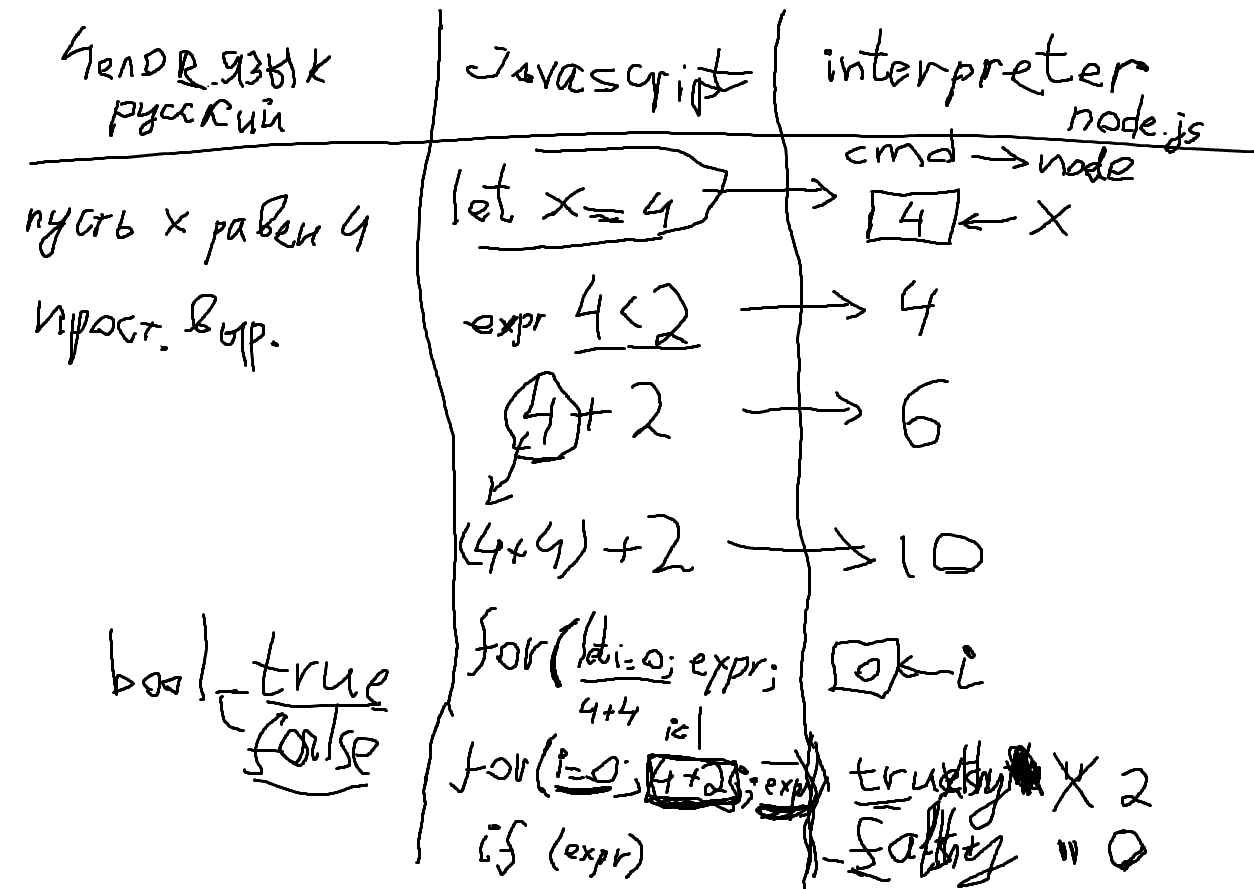 челов. язык
русский
Javascript
interpreter
node.js
cmd → node
пусть x равен 4
let x = 4 →
4 ← x
прост. выр.
expr 4 < 2 → 4
4 + 2 → 6
(4+4) + 2 → 10
bool true
false
for(let i=0; expr;
0 ← i
4+4
i<1
for(i=0; 4+2; expr)
truthy X 2
falthy " 0
if (expr)